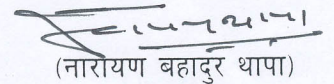 (नारायण बहादुर थापा)